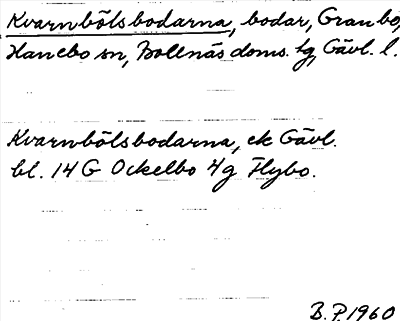 Kvarnbölsbodarna, bodar, Granbo,
Hanebo sn, Bollnäs doms. tg, Gävl. l.
Kvarnbölsbodarna, ek Gävl.
bl. 14 G Ockelbo 4g Flybo.
B. P. 1960